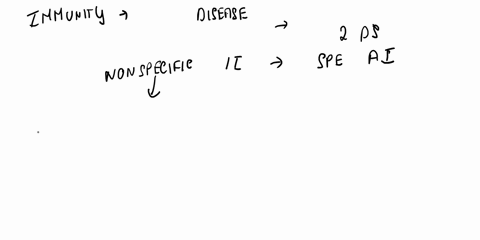 IMMUNITY → DISEASE →
2 DS
NONSPECIFIC II → SPE AI